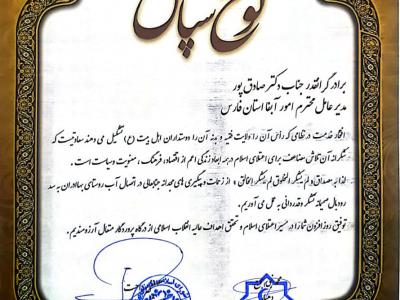 لوح سپاس
برادر گرانقدر جناب دکتر صادق پور
مدیر عامل محترم امور آبفا استان فارس
افتخار خدمت در نظامی که رأس آن را ولایت فقیه و بدنه آن را دوستداران اهل بیت (ع) تشکیل می دهند سعادتیست که
شکرانه آن تلاش مضاعف برای اعتلای اسلام در همه ابعاد زندگی اعم از اقتصاد، فرهنگ، معنویت و سیاست است.
لذا به مصداق و لم یشکر المخلوق لم یشکر الخالق و از زحمات و پیگیری های مجدانه جنابعالی در اتصال آب روستای بهادران به سد
رودبال صمیمانه تشکر و قدردانی به عمل می آوریم.
توفیق روز افزون شما را در مسیر اعتلای اسلام و تحقق اهداف عالیه انقلاب اسلامی از درگاه پروردگار متعال آرزومندیم.